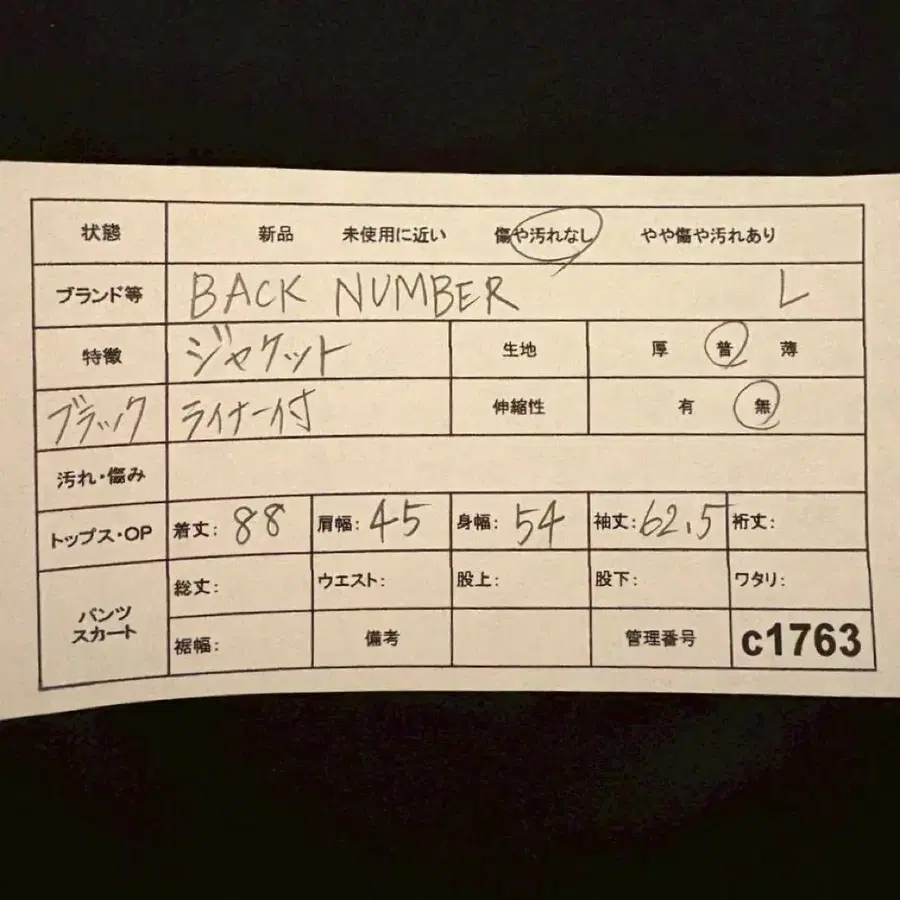 状態 新品 未使用に近い 傷や汚れなし やや傷や汚れあり
ブランド等 BACK NUMBER L
特徴 ジャケット 生地 厚 普 薄
ブラック ライナー付 伸縮性 有 無
汚れ・傷み
トップス・OP 着丈: 88 肩幅: 45 身幅: 54 袖丈: 62.5 裄丈:
パンツ
スカート
総丈: ウエスト: 股上: 股下: ワタリ:
裾幅: 備考 管理番号 c1763